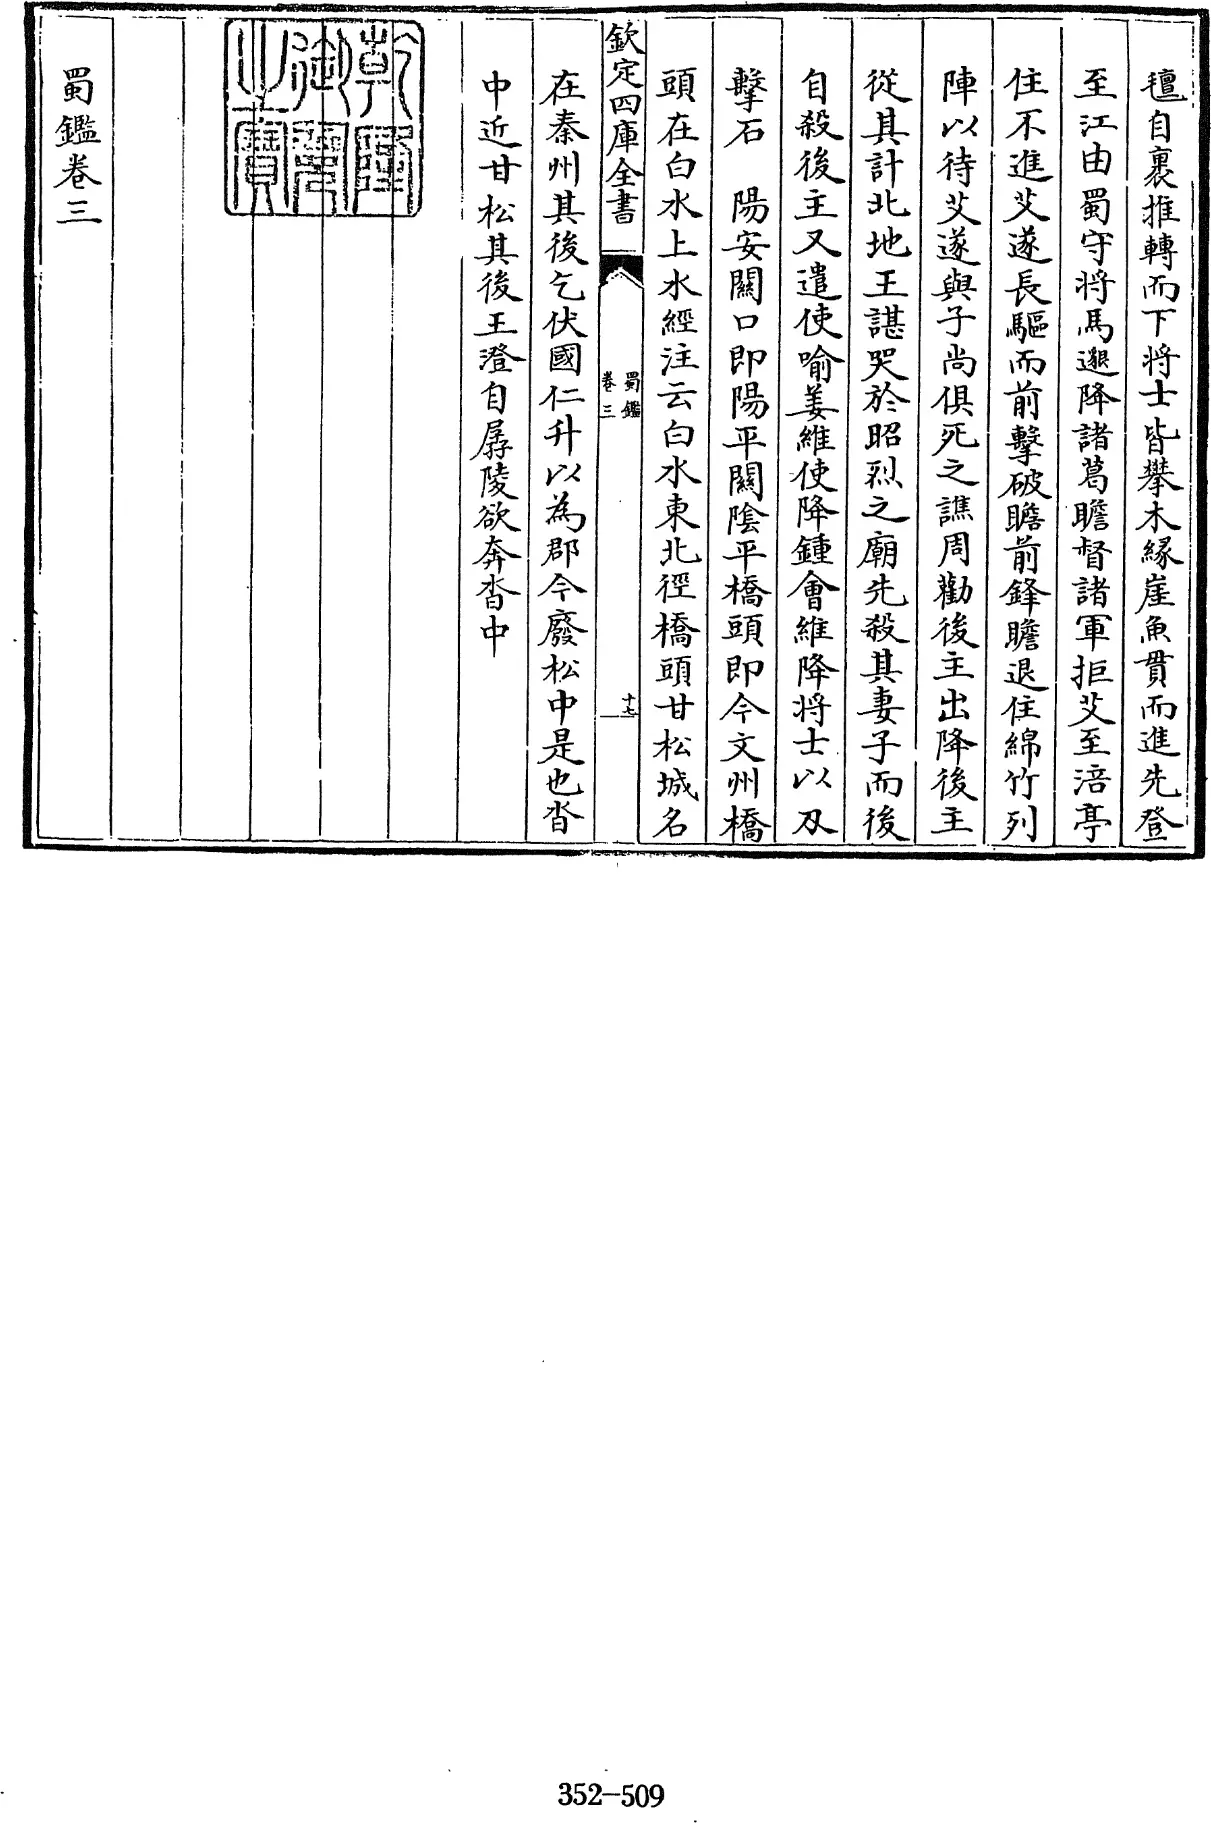 氊自裹推轉而下將士皆攀木緣崖魚貫而進先登
至江由蜀守將馬邈降諸葛瞻督諸軍拒艾至涪亭
住不進艾遂長驅而前擊破瞻前鋒瞻退住綿竹列
陣以待艾遂與子尚俱死之譙周勸後主出降後主
從其計北地王諶哭於昭烈之廟先殺其妻子而後
自殺後主又遣使喻姜維使降鍾會維降將士以刃
擊石　陽安關口即陽平關陰平橋頭即今文州橋
頭在白水上水經注云白水東北徑橋頭甘松城名
欽定四庫全書
蜀鑑
卷三
十七
在秦州其後乞伏國仁升以為郡今廢松中是也沓
中近甘松其後王澄自孱陵欲奔沓中
乾隆御覽之寶
蜀鑑卷三
352-509